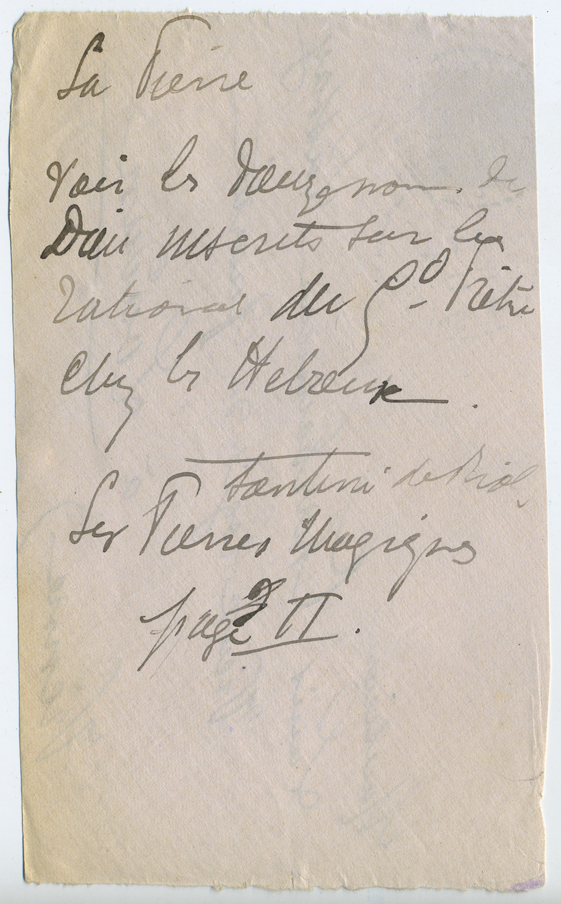 La Pierre
Voir les douze noms de
Dieu inscrits sur le
rational du Gd Prêtre
chez les Hebreux.
Santini de Riols
Les Pierres Magiques
page II.